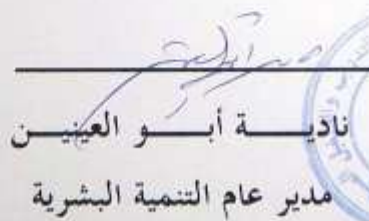 نادية أبو العينين
مدير عام التنمية البشرية